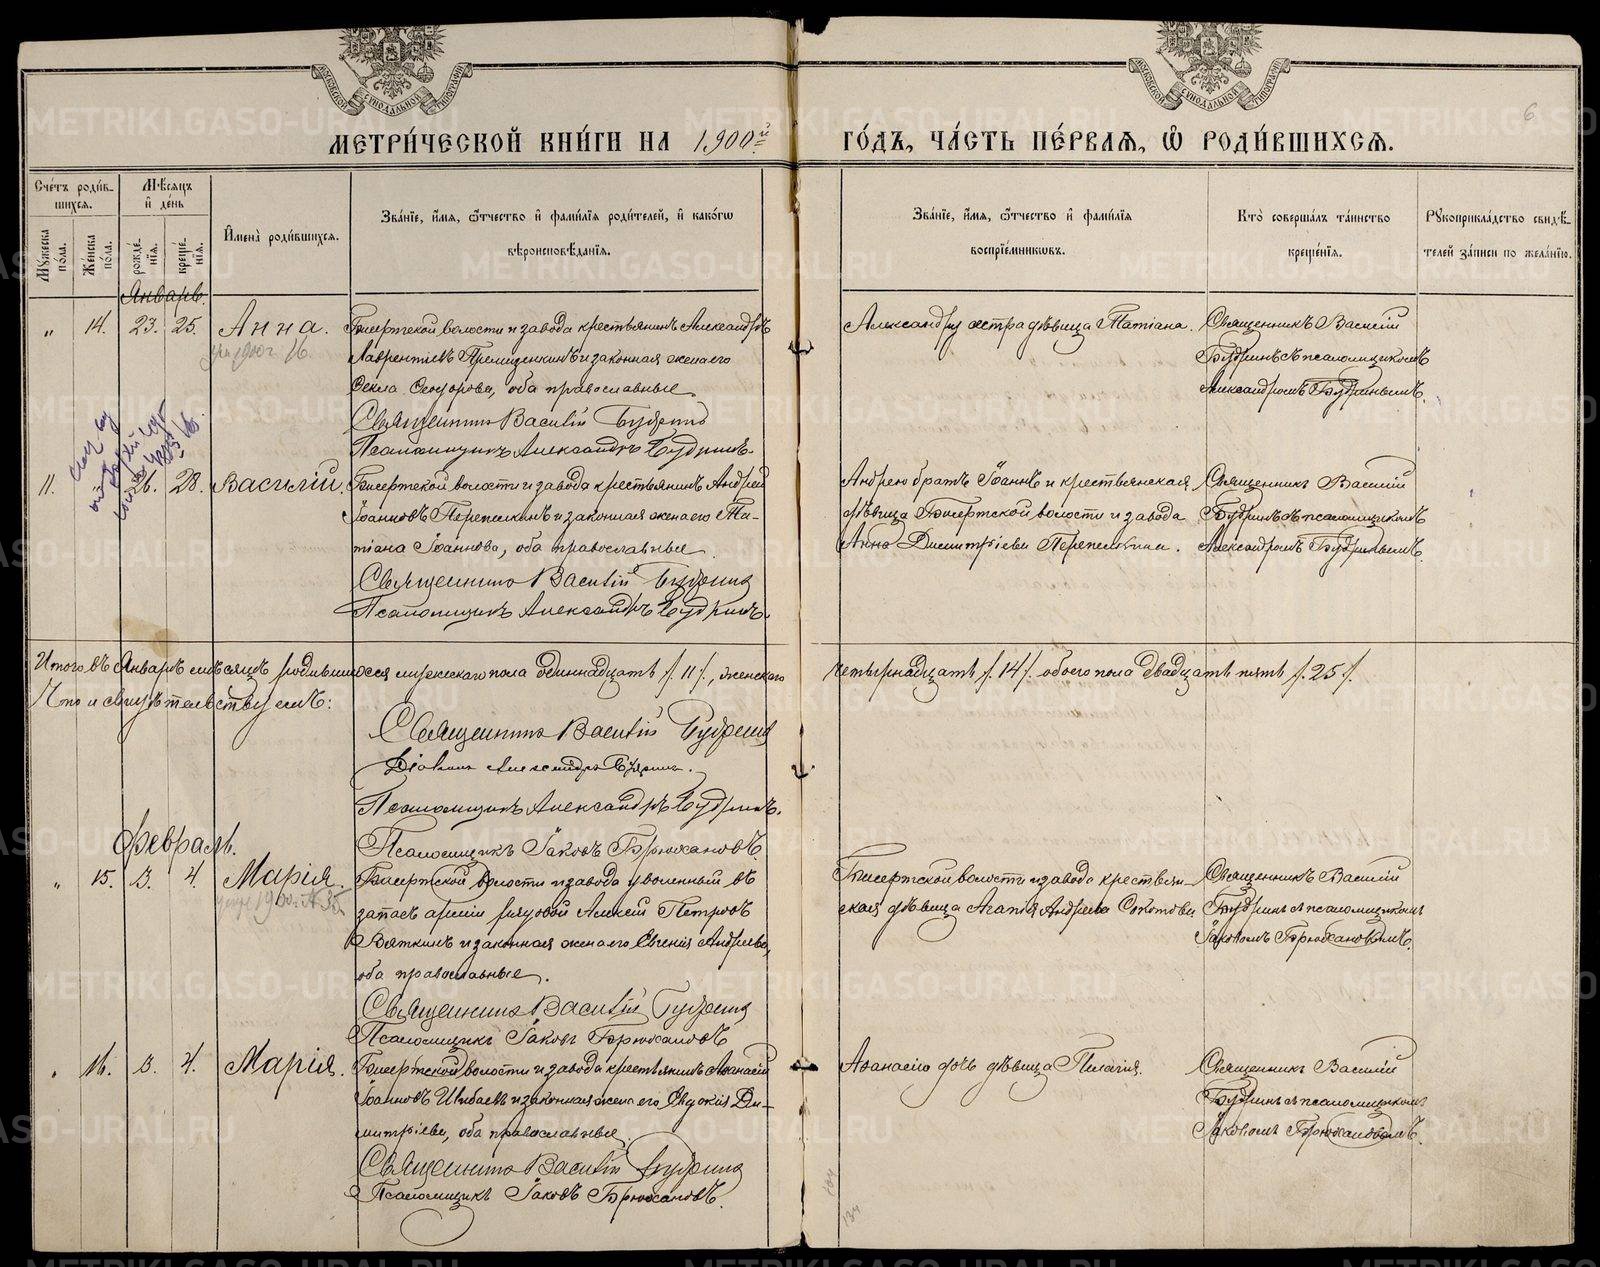 МОСКОВСКОЙ СУНОДАЛЬНОЙ ТИПОГРАФІИ
МОСКОВСКОЙ СУНОДАЛЬНОЙ ТИПОГРАФІИ
6
МЕТРИ́ЧЕСКОЙ КНИ́ГИ НА 1900й
ГО́ДЪ, ЧА́СТЬ ПЕ́РВАѦ, Ѽ РОДИ́ВШИХСѦ.
Сче́тъ роди́вшихся.
Мѣ́сяцъ и҆ де́нь
И҆мена̀ роди́вшихся.
Зва́нїе, и҆́мя, ѻ҆́тчество и҆ фами́лїя роди́телей, и҆ како́гѡ
вѣроисповѣ́данїя.
Зва́нїе, и҆́мя, ѻ҆́тчество и҆ фами́лїя
воспрїе́мникѡвъ.
Кто̀ соверша́лъ та́инство
креще́нїя.
Рꙋкоприкла́дство свидѣ́телей за́писи по жела́нїю.
Мꙋ́жеска по́ла.
Же́нска по́ла.
рожде́нїя.
креще́нїя.
Январь.
„ 14. 23. 25. Анна.
Бисертской волости и завода крестьянинъ Александръ
Лаврентіевъ и законная жена его
Ѳекла Ѳеодорова, оба православные.
Священникъ Василій Будринъ
Псаломщикъ Александръ Будринъ.
Александру сестра дѣвица Татіана.
Священникъ Василій
Будринъ съ псаломщикомъ
Александромъ Будринымъ.
11. 26. 28. Василій.
Бисертской волости и завода крестьянинъ Андрей
Іоанновъ Перепелкинъ и законная жена его Та-
тіана Іоаннова, оба православные.
Священникъ Василій Будринъ
Псаломщикъ Александръ Будринъ.
Андрею братъ Іоаннъ и крестьянская
дѣвица Бисертской волости и завода
Анна Димитріева Перепелкина.
Священникъ Василій
Будринъ съ псаломщикомъ
Александромъ Будринымъ.
Итого въ Январѣ мѣсяцѣ родившихся мужескаго пола одиннадцать /. 11 /., женскаго
четырнадцать /. 14 /. обоего пола двадцать пять /. 25 /.
Что и свидѣтельствуемъ:
Священникъ Василій Будринъ
Діаконъ Александръ
Псаломщикъ Александръ Будринъ.
Псаломщикъ Іаковъ Брюхановъ.
Февраль.
„ 15. 3. 4. Марія.
Бисертской волости и завода уволенный въ
запасъ арміи рядовой Алексѣй Петровъ
Вяткинъ и законная жена его Евгенія Андреева,
оба православные.
Священникъ Василій Будринъ
Псаломщикъ Іаковъ Брюхановъ
Бисертской волости и завода крестьян-
ская дѣвица Агапія Андреева
Священникъ Василій
Будринъ съ псаломщикомъ
Іаковомъ Брюхановымъ.
„ 16. 3. 4. Марія.
Бисертской волости и завода крестьянинъ Аѳанасій
Іоанновъ и законная жена его Евдокія Ди-
митріева, оба православные.
Священникъ Василій Будринъ
Псаломщикъ Іаковъ Брюхановъ.
Аѳанасію дочь дѣвица Пелагія.
Священникъ Василій
Будринъ съ псаломщикомъ
Іаковомъ Брюхановымъ.
134
METRIKI.GASO-URAL.RU